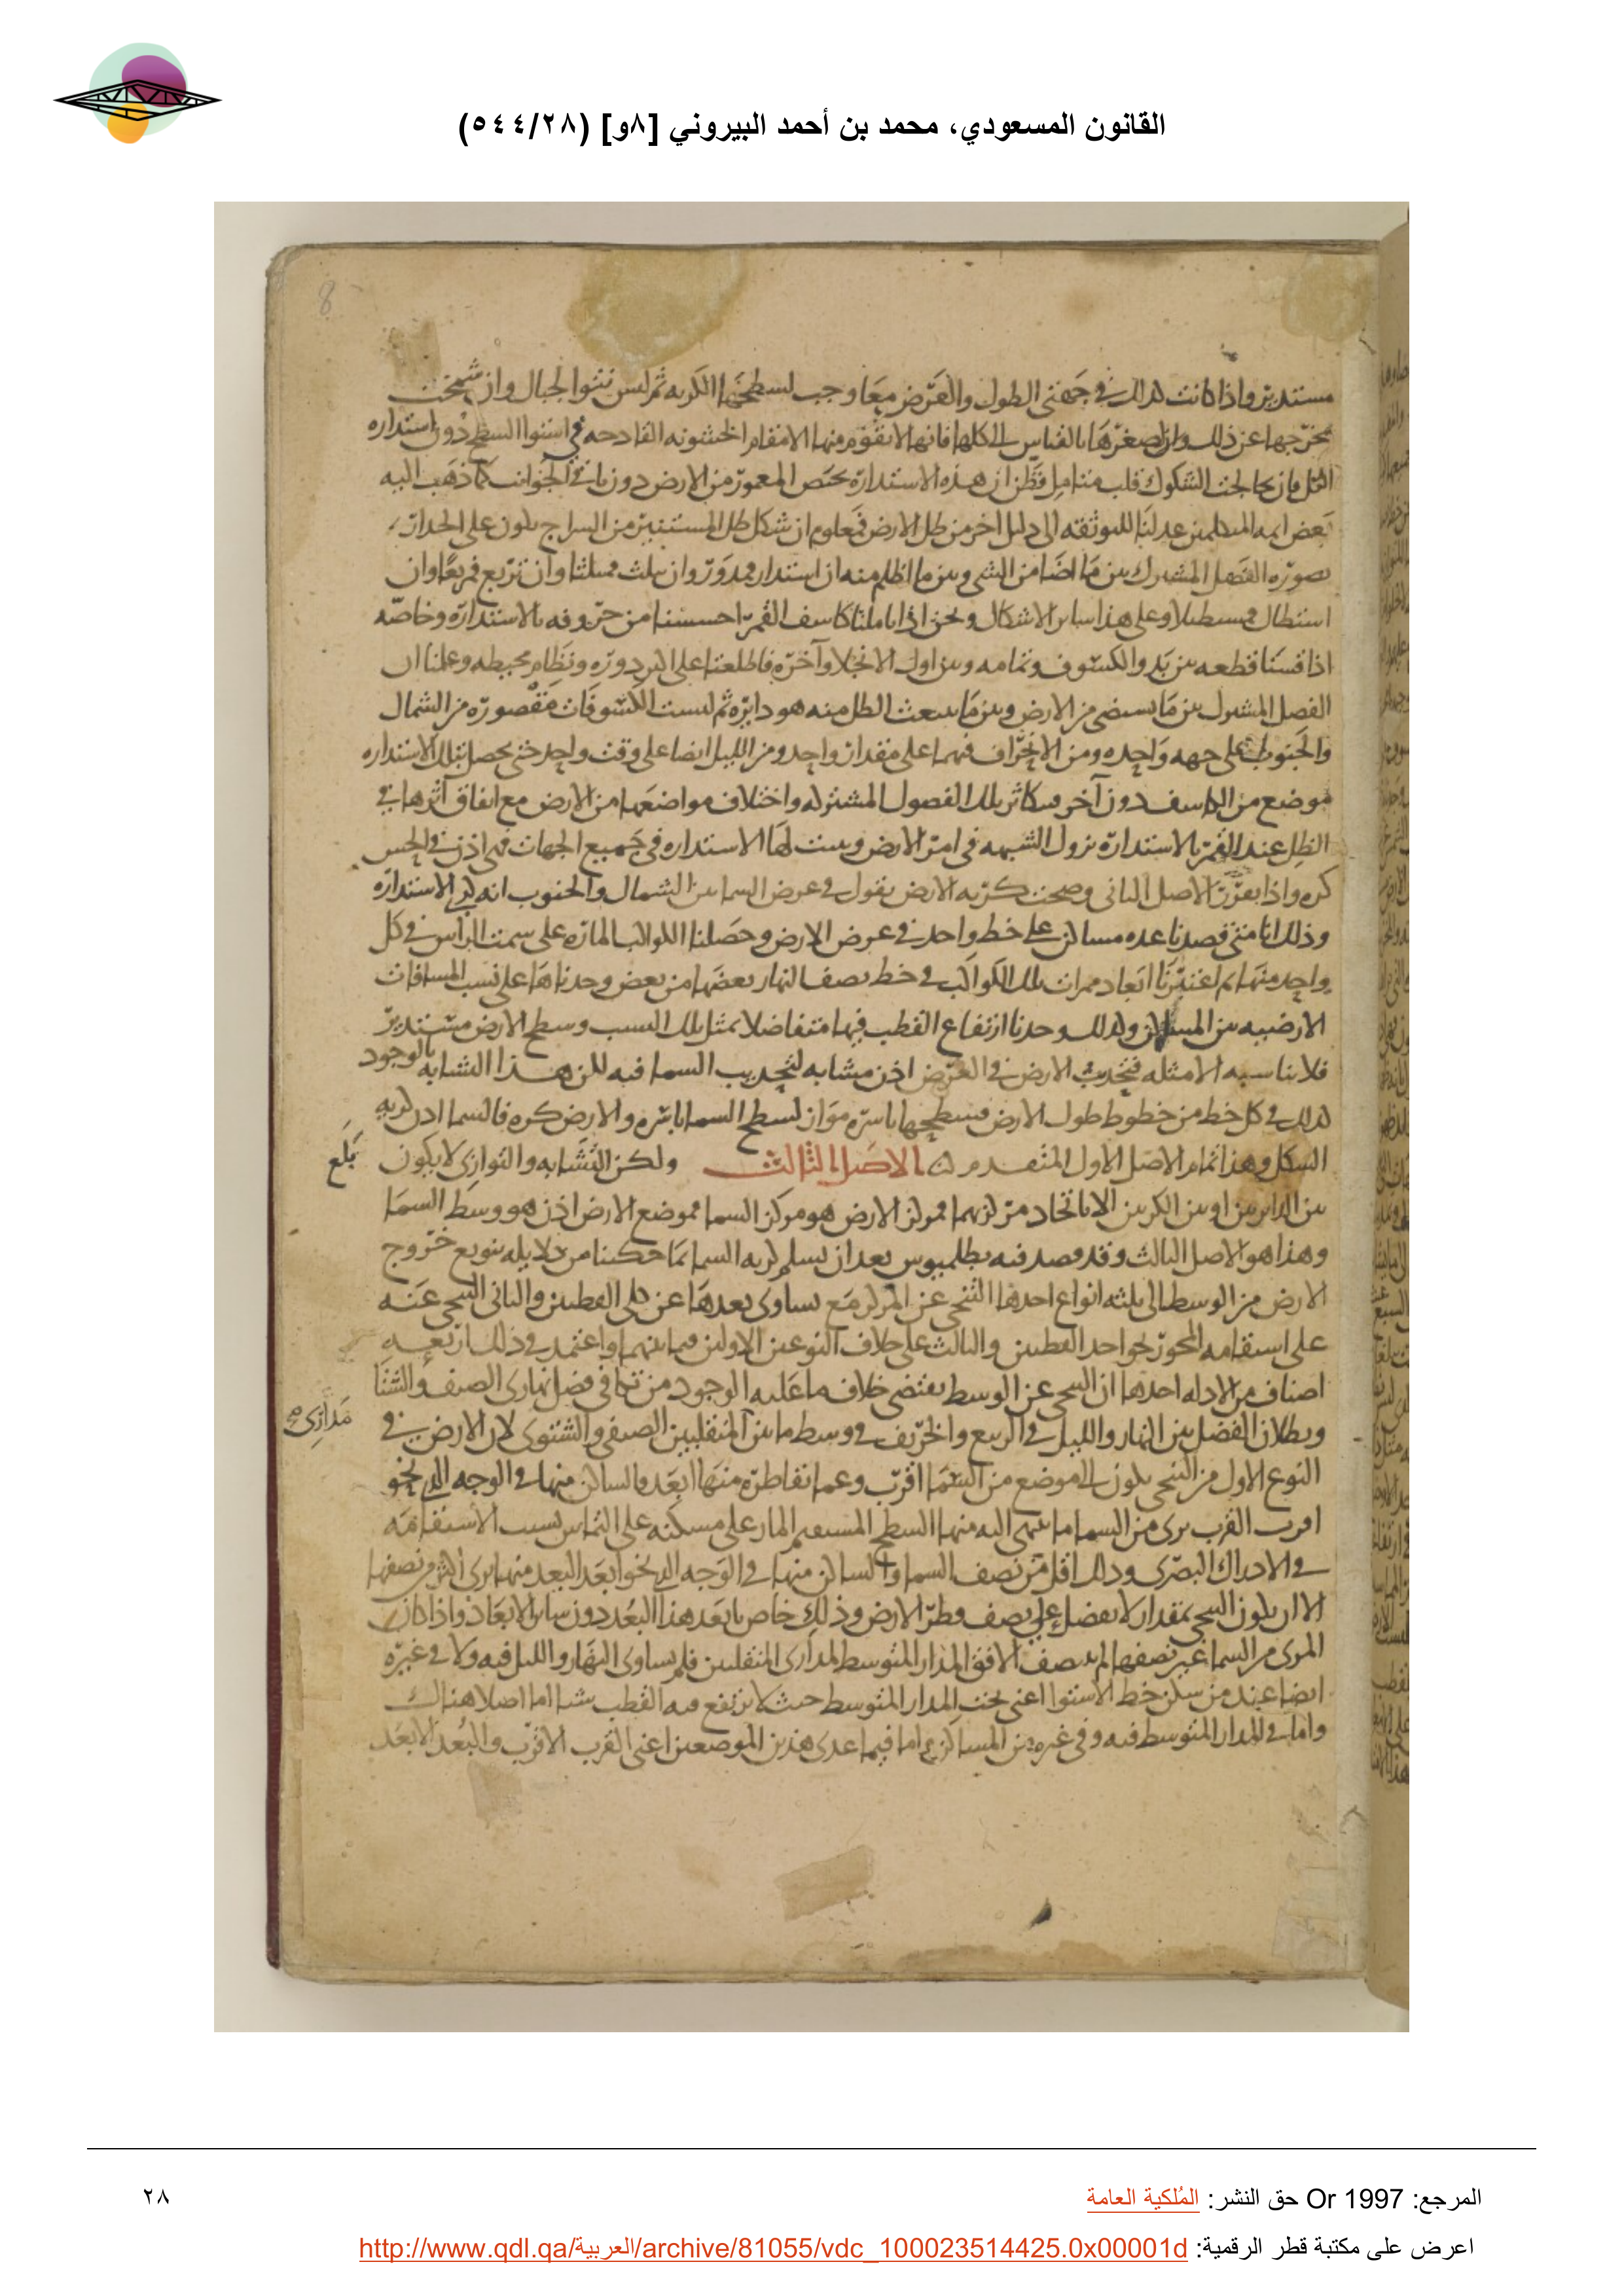 القانون المسعودي، محمد بن أحمد البيروني [٨و] (٥٤٤/٢٨)
8
مستديره واذا كانت كذلك في جهتى الطول والعرض معا وجب لسطحها الكريه ثم ليس نتوا الجبال وان شمخت
مخرجها عن ذلك وان لصغرها بالقياس الى كلها فانها لا تقوم منها الا مقام الخشونه القادحه في استوا السطح دون استداره
الكل فان خالجت الشكوك قلب متامل فظن ان هذه الاستدارة تختص المعمور من الارض دون باقى الجوانب كما ذهب اليه
بعض ايمه المتكلمين عدلنا للتوثقه الى دليل اخر من ظل الارض فمعلوم ان شكل ظل المستنير من السراج يكون على الجدار
بصوره الفصل المشترك بين ما اضا من الشى وبين ما اظلم منه ان استدار فمدور وان تثلث فمثلثا وان تربع فمربعا وان
استطال فمستطيلا وعلى هذا ساير الاشكال ونحن اذا تاملنا كاسف القمر احسسنا من حروفه بالاستدارة وخاصه
اذا قسنا قطعه بين بدو الكسوف وتمامه وبين اول الانجلا وآخره فاطلعنا على دوره ونظام محيطه وعلمنا ان
الفصل المشترك بين ما يستضى من الارض وبين ما ينبعث الظل منه هو دايره ثم ليست الكسوفات مقصورة من الشمال
والجنوب على جهه واحده ومن الانحراف فيهما على مقدار واحد ومن الليل ايضا على وقت واحد حتى يحصل بتلك الاستداره
موضع من الكاسف دون آخر فبتكاثر تلك الفصول المشتركه واختلاف مواضعها من الارض مع اتفاق اثرها في
الظل عند القمر بالاستدارة تزول الشبهه في امر الارض ويثبت لها الاستداره في جميع الجهات فهى اذن في الحس
كره واذا تقرر الاصل الثانى وصحت كريه الارض نقول في عرض السما بين الشمال والجنوب انه كرى الاستدارة
وذلك انا متى قصدنا عده مساكن على خط واحد في عرض الارض وحصلنا الكواكب المارة على سمت الراس في كل
واحد منها ثم اعتبرنا ابعاد ممرات تلك الكواكب في خط نصف النهار بعضها من بعض وجدناها على نسب المسافات
الارضيه بين المساكن وكذلك وجدنا ارتفاع القطب فيها متفاضلا بمثل تلك النسب وسطح الارض مستدير
فلا يناسبه الا مثله فتحديب الارض في العرض اذن مشابه لتحديب السما فيه لكن هذا التشابه بالوجود
كذلك في كل خط من خطوط طول الارض فسطحها باسره مواز لسطح السما باسره والارض كره فالسما اذن كريه
الشكل وهذا تمام الاصل الاول المتقدم الاصل الثالث ولكن التشابه والتوازى لا يكون
بلغ
بين الدايرتين او بين الكرتين الا باتحاد مركزيهما فمركز الارض هو مركز السما فموضع الارض اذن هو وسط السما
وهذا هو الاصل الثالث وقد قصد فيه بطلميوس بعد ان تسلم كريه السما بما حكينا من دلايله تنويع خروج
الارض من الوسط الى ثلثه انواع احدها التنحى عن المركز مع تساوى بعدها عن كلى القطبين والثانى التنحى عنه
على استقامه المحور نحو احد القطبين والثالث على خلاف النوعين الاولين فيما بينهما واعتمد في ذلك اربعه
اصناف من الادله احدها ان التنحى عن الوسط يقتضى خلاف ما عليه الوجود من تكافى فضل نهارى الصيف والشتا
وبطلان الفضل بين النهار والليل في الربيع والخريف في وسط ما بين المنقلبين الصيفى والشتوى لان الارض في
مدارى صح
النوع الاول من التنحى يكون الى موضع من السما اقرب وعما تقاطره منها ابعد والساكن منها في الوجه الذى نحو
اقرب القرب يرى من السما ما ينتهى اليه منها السطح المستقيم المار على مسكنه على التماس بسبب الاستقامه
في الادراك البصرى وذلك اقل من نصف السما والساكن منها في الوجه الذى نحو ابعد البعد منها يرى اكثر من نصفها
الا ان يكون التنحى بمقدار لا يفضل على نصف قطر الارض وذلك خاص بابعد هذا البعد دون ساير الابعاد واذا كان
المرى من السما غير نصفها لم ينصف الافق المدار المتوسط لمدارى المنقلبين فلم يتساوى النهار والليل فيه ولا في غيره
ايضا عند من سكن خط الاستوا اعنى تحت المدار المتوسط حيث لا يرتفع فيه القطب بتا اما اصلا هناك
واما في المدار المتوسط فيه وفي غيره من المساكن اما فيما عدى هذين الموضعين اعنى القرب الاقرب والبعد الابعد
المرجع: Or 1997 حق النشر: المُلكية العامة
٢٨
اعرض على مكتبة قطر الرقمية: http://www.qdl.qa/العربية/archive/81055/vdc_100023514425.0x00001d